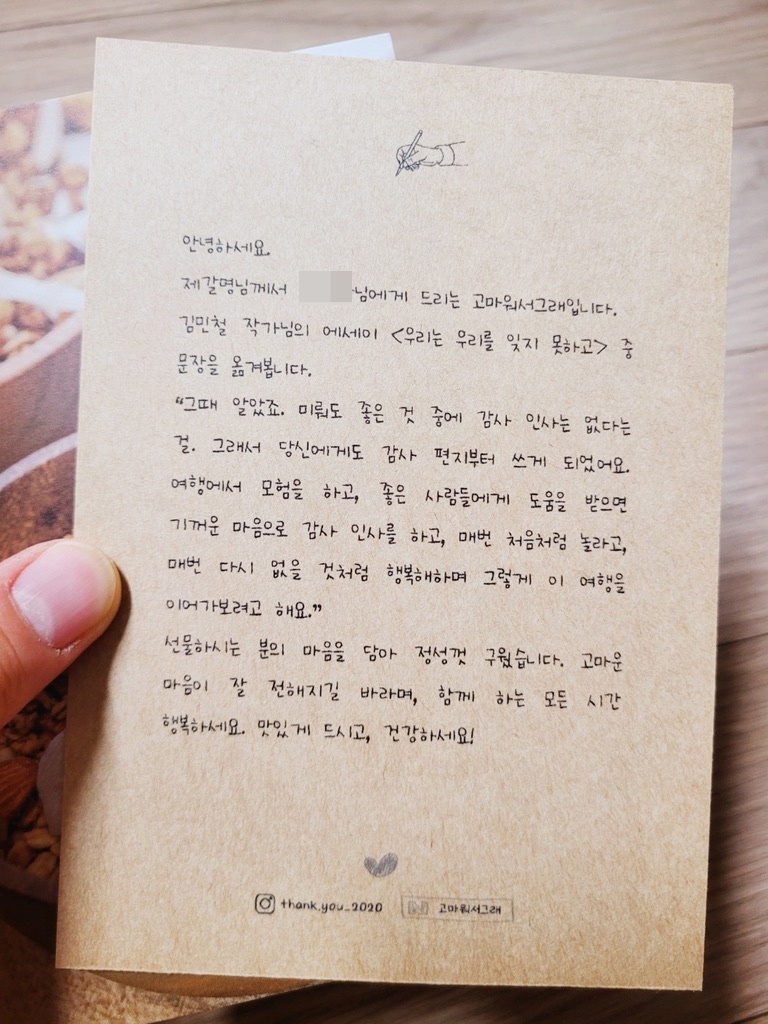 안녕하세요.
제갈명님께서 님에게 드리는 고마워서그래입니다.
김민철 작가님의 에세이 <우리는 우리를 잊지 못하고> 중
문장을 옮겨봅니다.
“그때 알았죠. 미뤄도 좋은 것 중에 감사 인사는 없다는
걸. 그래서 당신에게도 감사 편지부터 쓰게 되었어요.
여행에서 모험을 하고, 좋은 사람들에게 도움을 받으면
기꺼운 마음으로 감사 인사를 하고, 매번 처음처럼 놀라고,
매번 다시 없을 것처럼 행복해하며 그렇게 이 여행을
이어가보려고 해요.”
선물하시는 분의 마음을 담아 정성껏 구웠습니다. 고마운
마음이 잘 전해지길 바라며, 함께 하는 모든 시간
행복하세요. 맛있게 드시고, 건강하세요!
thank.you_2020 N 고마워서그래